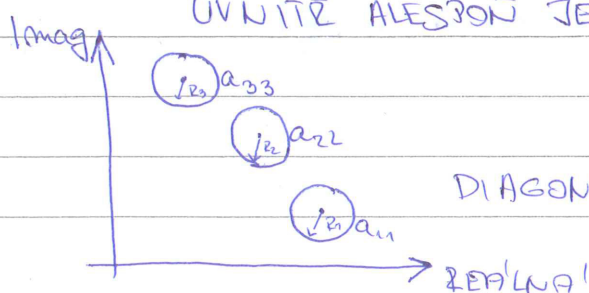 UVNITŘ ALESPOŇ JE
Imag
R3 a33
R2 a22
DIAGON
R1 a11
REÁLNÁ